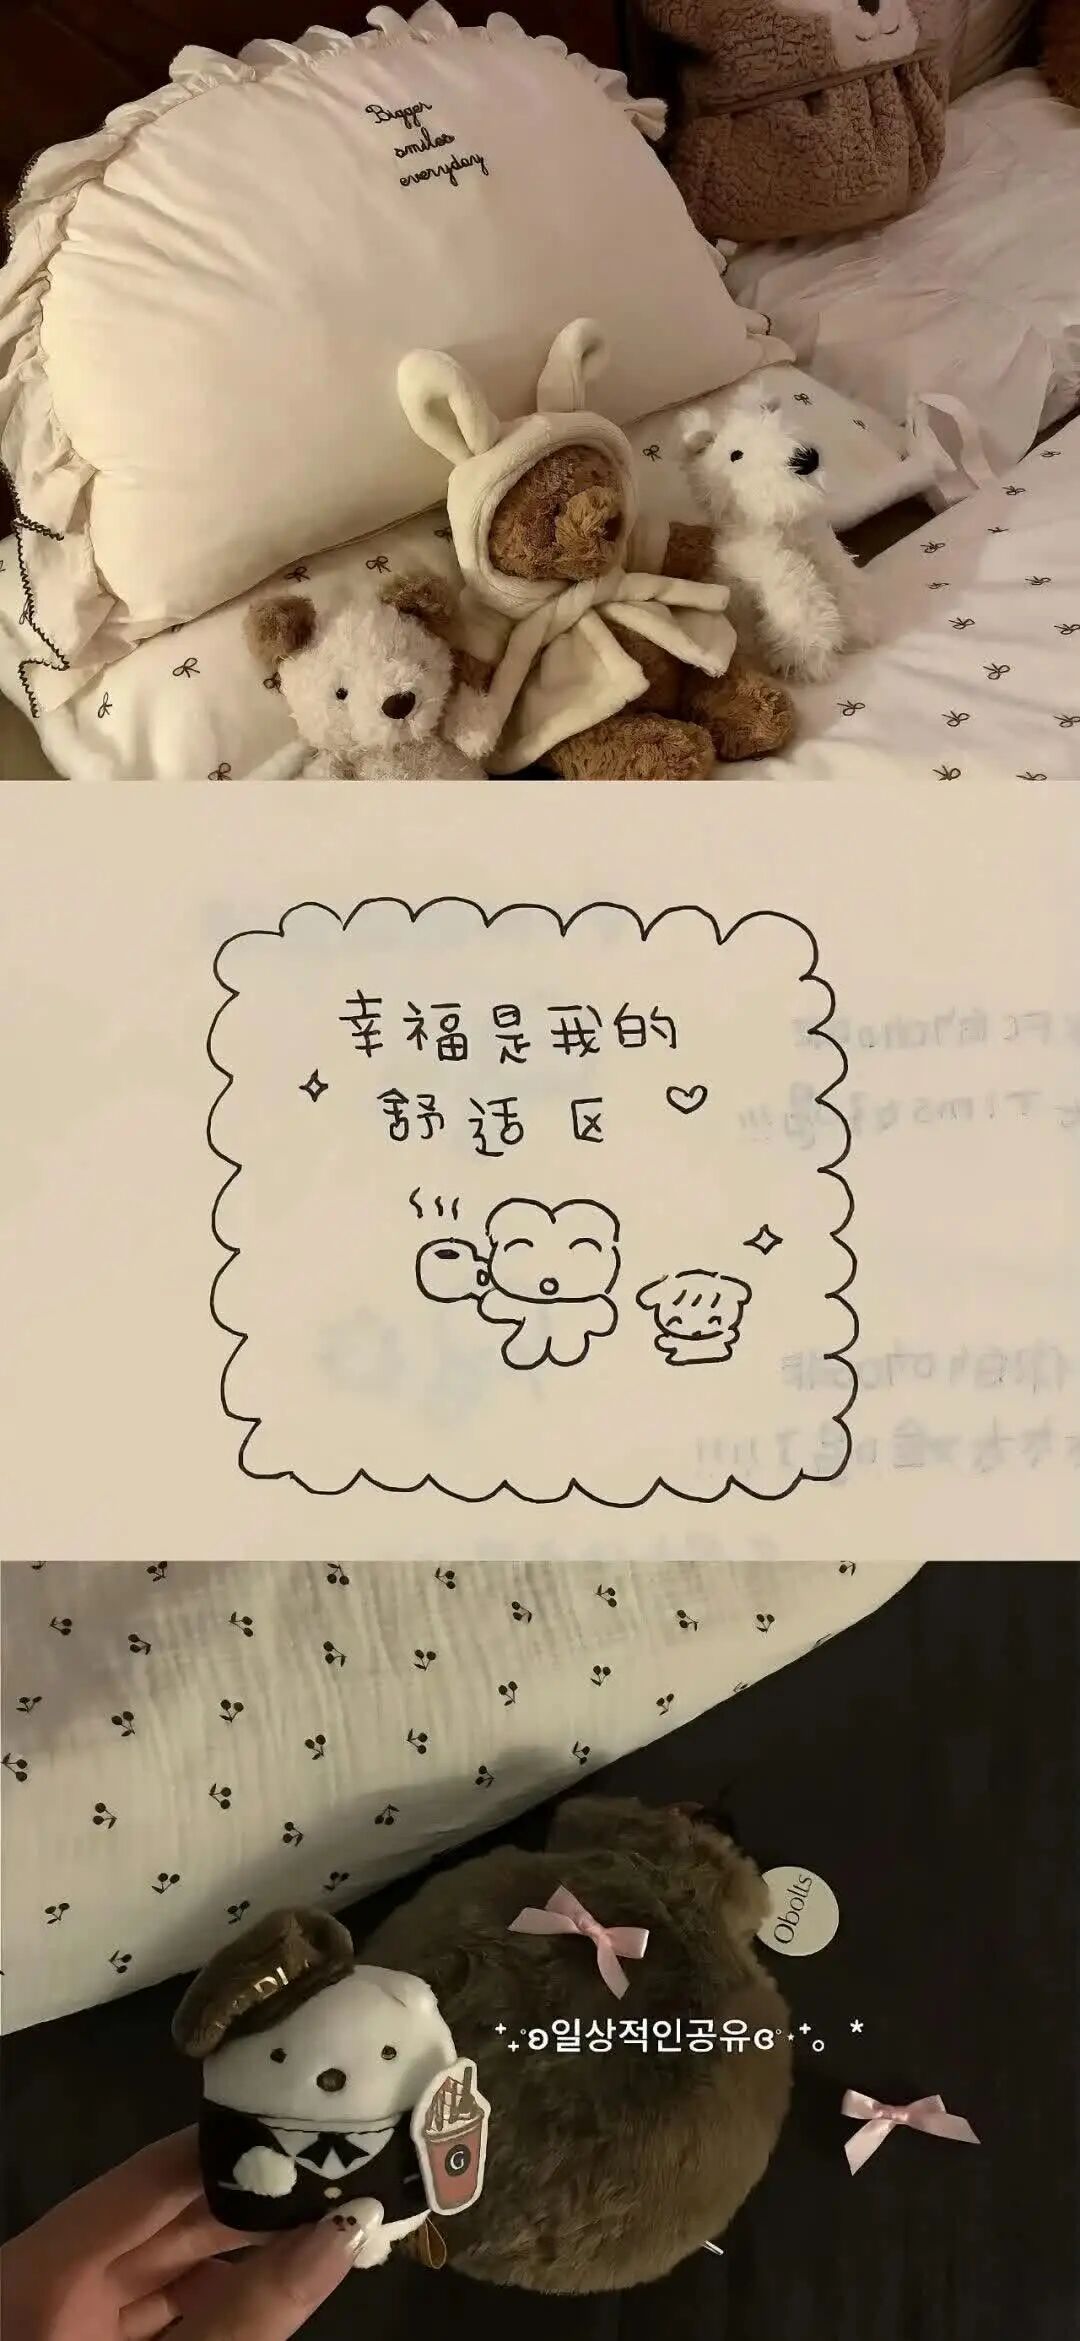 Bigger
smiles
everyday
幸福是我的
舒适区
Obolts
⁺₊˚ʚ일상적인공유ɞ˚⋆⁺。*
G